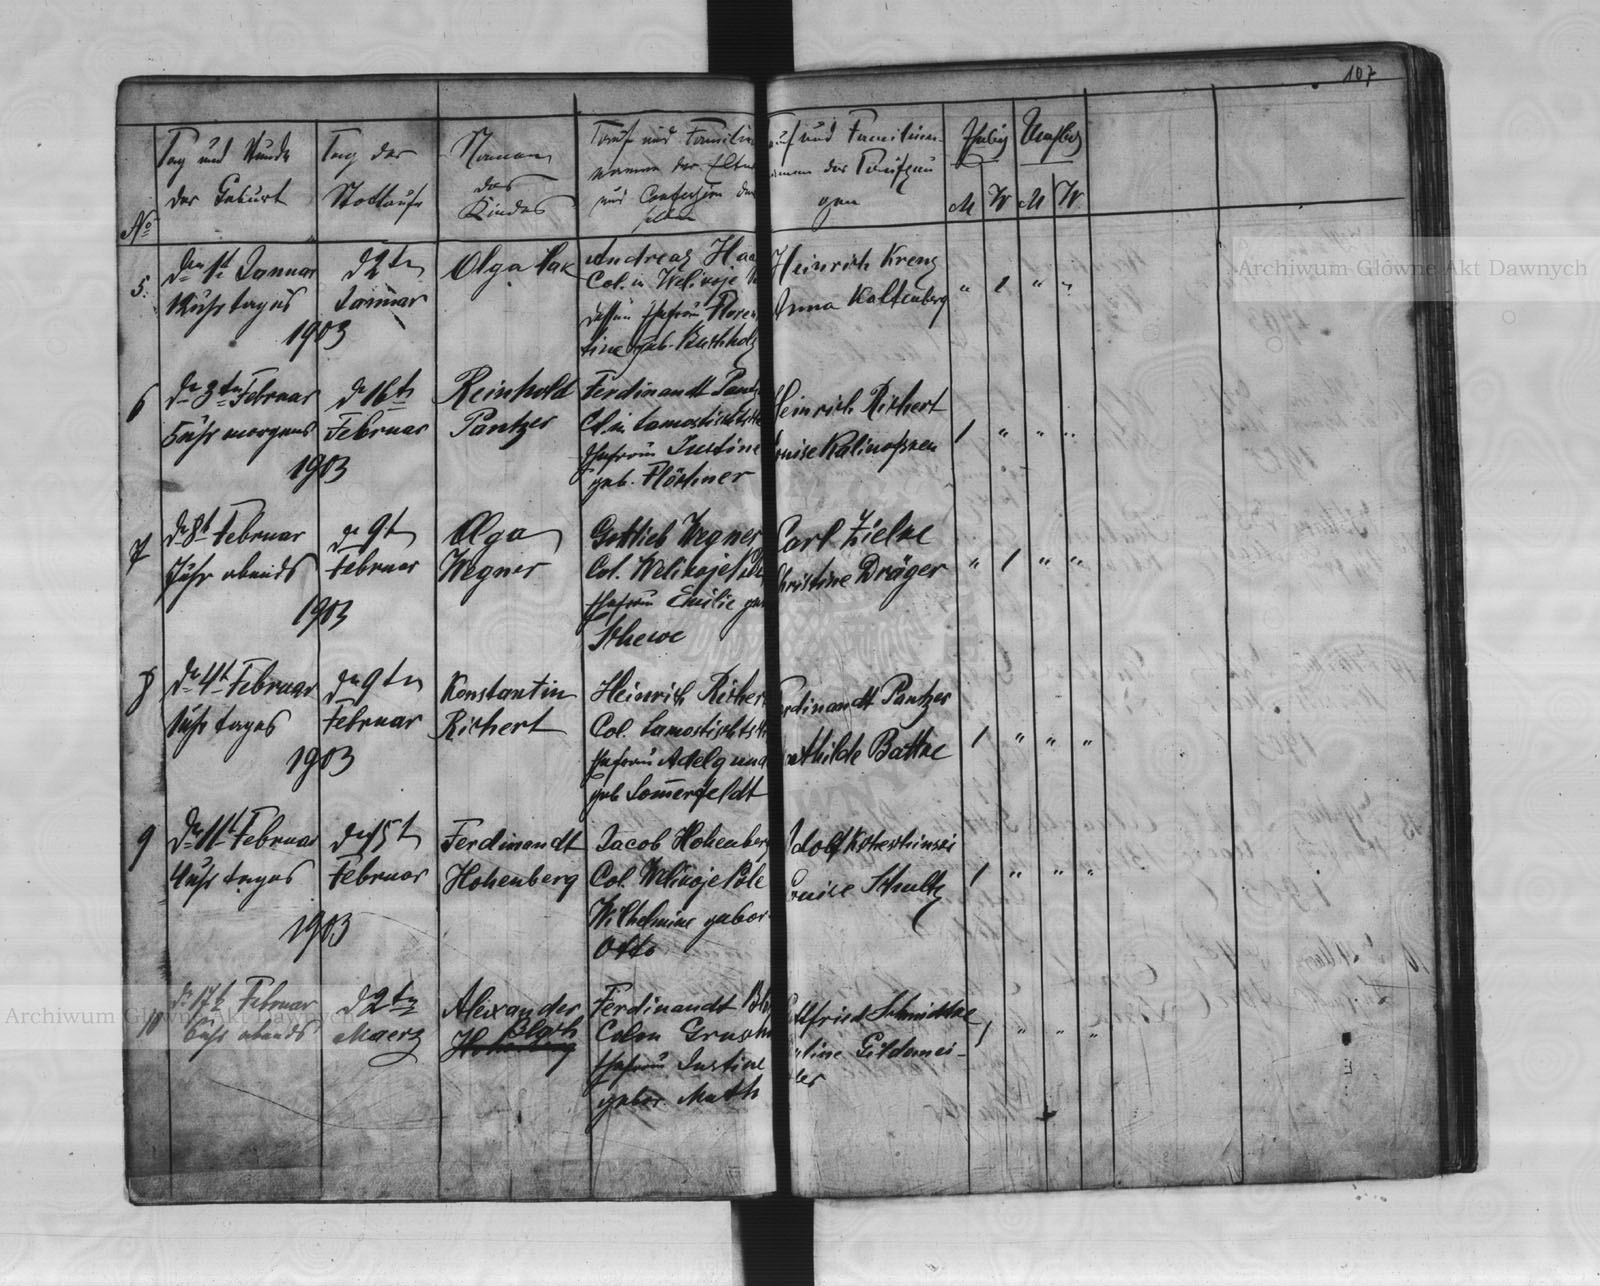 107
Tag und Stunde
der Geburt
Tag der
Nottaufe
Namen
des
Kindes
Tauf und Familien
namen der Eltern
und Confession der
selben
und Familien-
namen der Taufzeu
gen
Ehelig
Unehlig
No
M
W
M
W
5.
den 1t Januar
Uhr tages
1903
d 2tn
Januar
Olga Hak
Andreas Haa
Col. in Welikoje
dessen Ehefrau Floren
tine geb. Buchholz
Heinrich Krenz
Anna Kaltenberg
" 1 " "
6
dn 3tn Februar
5 Uhr morgens
1903
dn 16tn
Februar
Reinhold
Pantzer
Ferdinandt Pant
Col. in
Ehefrau Justine
geb. Plöschner
Heinrich Richert
Louise
1 " " "
7
dn 8t Februar
Uhr abends
1903
dn 9t
Februar
Olga
Wegner
Gottlieb Wegner
Col. Welikoje Pole
Ehefrau Emilie geb
Schewe
Carl Zielke
Christine Dräger
" 1 " "
8
dn 4t Februar
Uhr tages
1903
dn 9tn
Februar
Konstantin
Richert
Heinrich Richer
Col.
Ehefrau Adelgund
geb Somerfeldt
Ferdinandt Pantzer
Mathilde Battke
1 " " "
9
dn 11t Februar
4 Uhr tages
1903
dn 15t
Februar
Ferdinandt
Hohenberg
Jacob Hohenberg
Col. Welikoje Pole
Wilhelmine gebor
Otto
Adolf
Louise Schultz
1 " " "
10
dn 17t Februar
6 Uhr abends
d 2tn
Maerz
Alexander
Bloch
Ferdinandt Blo
Colon
Ehefrau Justine
gebor. Muth
Gottfried Schmidtke
Gildemei-
ster
1 " " "
Archiwum Główne Akt Dawnych
Archiwum Główne Akt Dawnych